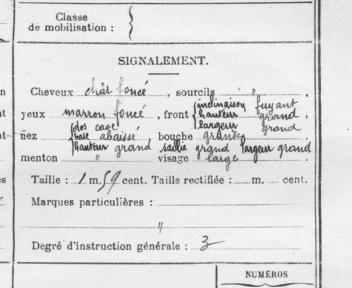 Classe
de mobilisation :
SIGNALEMENT.
Cheveux chât foncé, sourcils "
yeux marron foncé, front { inclinaison fuyant
hauteur grand,
largeur grand
nez { dos cave
base abaissé
hauteur grand saillie grand largeur grand
bouche grande
menton " visage large
Taille : 1 m. 59 cent. Taille rectifiée : m. cent.
Marques particulières :
"
Degré d'instruction générale : 3
NUMÉROS